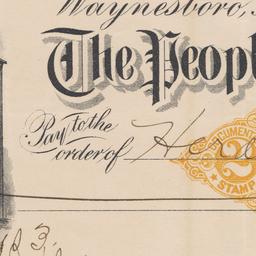 Waynesboro,
The Peopl
Pay to the
order of
DOCUMENTARY
2
STAMP